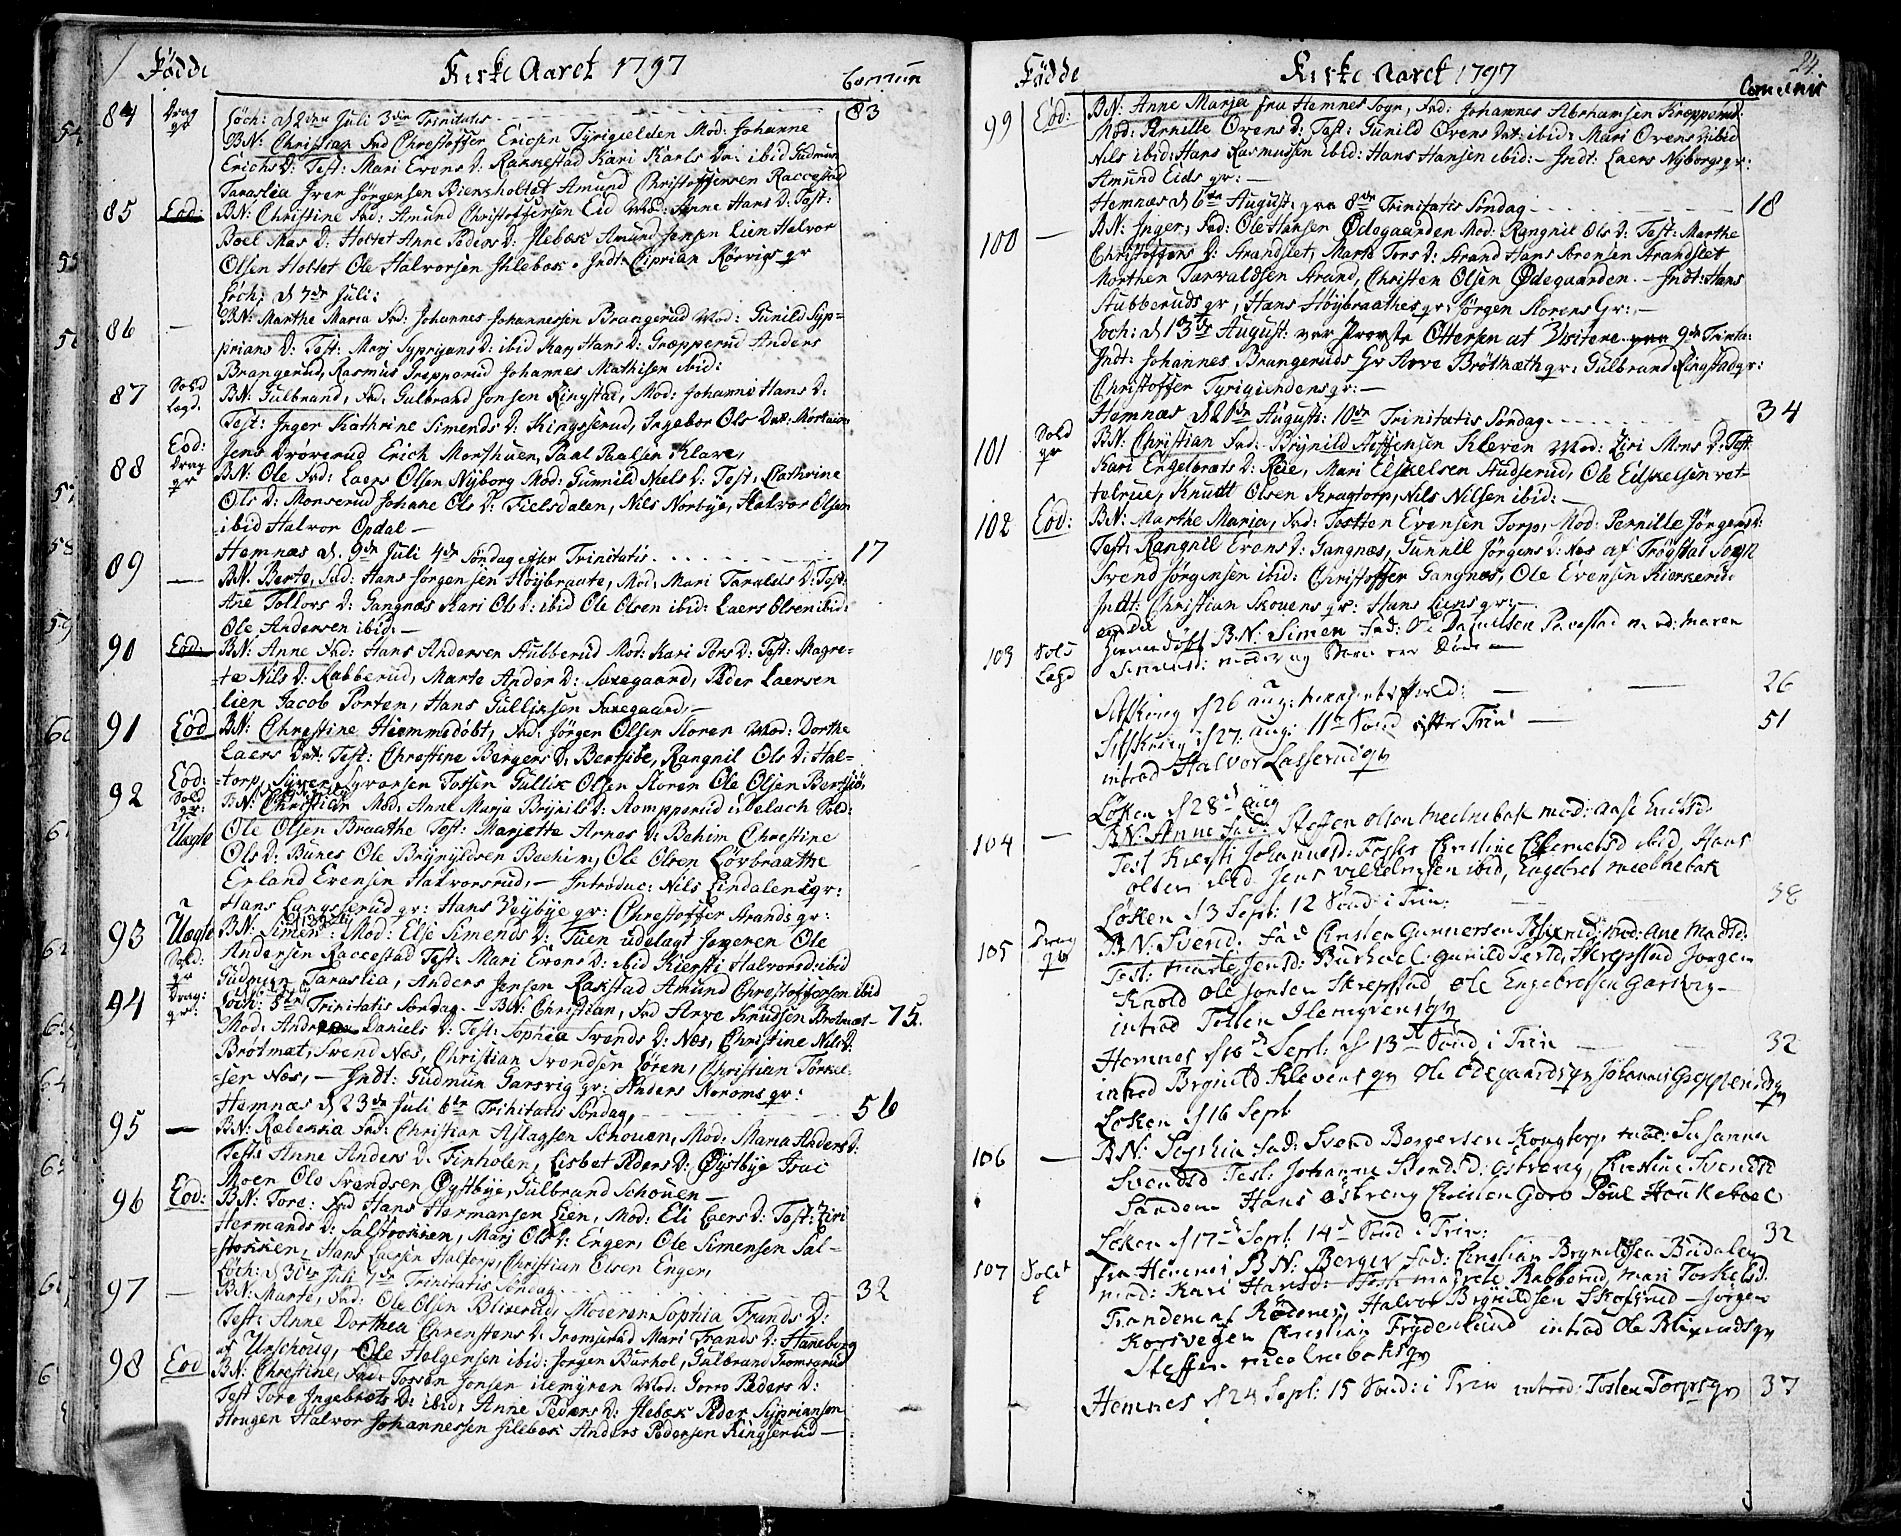 Fødde Kirke Aaret 1797 Comun
84 Drag gr Løch: d 2den Juli 3die Trinitatis 83
BN: Christian Fad Christoffer Ericsen Tyrigielden Mod: Johanne
Erichs D: Test: Mari Evens D: Rakkestad Kari Karls Dat: ibid Gudmun
Taraslia Iver Jørgensen Biensholtet Amund Christoffersen Raccestad
85 Eod: BN: Christine Fad: Amund Christoffersen Eid Mod: Anne Hans D: Test:
Boel Mas D: Holtet Anne Peders D: Ilebæk Amund Jensen Lien Halvor
Olsen Holtet Ole Halvorsen Ihlebæk. Indt: Ciprian Rørvigs gr
Løch: d 7de Juli:
86 — BN: Marthe Maria Fad: Johannes Johannessen Brangerud Mod: Gunild Syp=
prians D: Test: Marj Syprians D: ibid Kary Hans D: Græpperud Anders
Brangerud, Rasmus Grepperud Johannes Mathisen ibid:
87 Sold Lægd. BN: Gulbrand, Fad: Gulbrand Jonsen Ringstad, Mod: Johanne Hans D:
Test: Inger Kathrine Simends D: Kingsserud, Ingebor Ols Dat: Morthuen
Jens Drøverud Erich Morthuen, Paal Paalsen Klare,
88 Eod: Drag gr BN: Ole Fad: Laers Olsen Nyborg Mod: Gunnild Niels D: Test: Cathrine
Ols D: Monserud Johane Ols D: Fielsdalen, Nils Norbye, Halvor Olsen
ibid Halvor Opdal —
Hemnæs d. 9de Juli 4de Søndag efter Trinitatis 17
89 — BN. Berte, Fad: Hans Jørgensen Høybraate, Mod: Mari Taralds D: Test:
Ane Tollovs D: Gangnæs Kari Ols D: ibid Ole Olsen ibid: Laers Olsen ibid:
Ole Andersen ibid. —
90 Eod: BN: Anne Fad: Hans Andersen Stubberud Mod: Kari Pers D: Test: Magre-
te Nils D: Rabberud, Marte Ander D: Saxegaard, Peder Laersen
Lien Jacob Porten, Hans Gullixsen Saxegaard. —
91 Eod BN: Chrestine Hiemmedøbt, Fad: Jørgen Olsen Storen Mod: Dorthe
Laers Dat: Test: Chrestine Bergers D: Bersibe, Rangnil Ols D: Hal=
torp, Syver Syversen Tossen Gullik Olsen Storen Ole Olsen Bersjø.
92 Eod: Sold gr: Uægte BN: Christian Mod: Anne Marja Brynils D: Kompperud udelach Sold:
Ole Olsen Braathe Test: Marjette Arnes D: Bøhim Chrestine
Ols D: Bunes Ole Brynyldsen Beehim, Ole Olsen Løvbraathe
Erland Evensen Halvorsrud. — Introduc: Nils Lindalens gr:
Hans Lungsserud gr: Hans Veybye gr: Chrestoffer Strands gr:
93 Uægte Sold: gr BN: Simen Mod: Else Simends D: Tuen udelagt Jægeren Ole
Andersen Raccestad Test: Mari Evens D: ibid Kiersti Halvors d: ibid
Gudmun Taraslia, Anders Jensen Rakstad Amund Chrestoffersen ibid
94 Drag: gr: Løch: 5te Trinitatis Søndag. — BN: Christian, Fad Arve Knudsen Brotmæt- 75.
Mod: Andrea Daniels D: Test: Sophia Svends D: Næs, Christine Nils D:
Brøtmæt, Svend Næs, Christian Svendsen Løren, Christian Tørkel
sen Næs, — Indt: Gudmun Garsvig gr: Anders Noroms gr:
Hemnæs d 23de Juli 6te Trinitatis Søndag, 56
95 — BN: Rebekka Fad: Christian Aslagsen Schouen, Mod: Maria Anders D:
Test: Anne Anders D. Finholen, Lisbet Peders D: Øystbye Isac
Moen Ole Svendsen Øystbye, Gulbrand Schouen —
96 Eod: BN: Tore: Fad Hans Hermansen Lien, Mod: Eli Laers D: Test: Ziri
Hermands D: Salstrokken, Marj Ols D: Enger, Ole Simensen Sal-
stokken, Hans Laersen Haltorp, Christian Olsen Enger,
Løch: d 30te Juli 7de Trinitatis Søndag 32
97 — BN: Marte, Fad: Ole Olsen Blixerud, Moderen Sophia Trunds D:
Test: Anne Dorthea Chrenstens D: Gromserud Mari Trands D: Haneborg
af Urschoug, Ole Helgensen ibid: Jorgen Burhol, Gulbrand Tromserud
98 Eod BN: Chrestine, Fad: Tosten Jonsen ilemyren Mod: Gorro Peders D:
Test Tore Ingebræts D: ibid, Anne Peders D: Ilebæk Peder Syprianson
Hougen Halvor Johannessen Ilebæk Anders Pedersen Kingserud —
24.
Fødde Kirke Aaret 1797 Comunic
99 Eod: BN: Anne Marja fra Hemnes Sogn, Fad: Johannes Abrhamsen Kropperud:
Mod: Pernille Ovens D: Test: Gunild Ovens Dat: ibid: Mari Ovens D: ibid
Nils ibid: Hans Rasmussen ibid: Hans Hansen ibid: — Indt: Laers Nyborgs gr:
Amund Eids gr: —
Hemnæs d 6te August: 8de Trinitatis Søndag 18
100 — BN: Inger, Fad: Ole Hansen Ødegaarden Mod: Rangnil Ols D: Test: Marthe
Christoffers D: Strandslet, Marte Tors D: Strand Hans Sorensen Strandslet
Morthen Tarvaldsen Strand, Christen Olsen Ødegaarden. — Indt: Hans
Stubberuds gr, Hans Høybraathes gr: Jørgen Storens Gr: —
Loch: d 13de August: var Provste Ottersen at Visitere 9de Trinita:
Indt: Johannes Brangeruds Gr Arve Brøtmæth gr: Gulbrand Ringstad gr:
Christoffer Tyrigieldens gr: —
Hemnæs d 20de August: 10de Trinitatis Søndag 34
101 Sold gr BN: Christian Fad: Brynild Steffensen Kleven Mod: Ziri Mons D: Test:
Kari Engelbræts D: Reie, Mari Elskelsen Studserud, Ole Eilskelsen vet-
telrue, Knudt Olsen Kragtorp, Nils Nilsen ibid: —
102 Eod: BN: Marthe Maria, Fad: Tostten Evensen Torp, Mod: Pernille Jørgens D:
Test: Rangnil Evens D: Gangnæs, Gunnil Jørgens D: Næs af Trøgstad Sogn
Svend Jørgensen ibid: Christoffer Gangnæs, Ole Evensen Kierkerud.
Indt: Christian Skouens gr: Hans Liens gr: —
103 Sold Lægd hiemmedøbt BN: Simen Fad: Ole Danielsen Racestad mod: Maren
Simensd: moder og Barn er Døde —
Sætskoug d 26 aug: 26
Sætskoug d 27 aug: 11te Sønd efter Trin — 51
introd Halvor Lasserud gr
Løken d 28de aug
104 — BN: Anne Fad: Steffen olsen Meelnebæk mod: Aase Ericsd
Test Kiersti Johannesd: Fosser Christine Clemetsd ibid, Hans
olsen ibid Jens vilhelmsen ibid, Engebret meelnebæk
Løken d 3 Sept: 12 Sønd: i Trin: 38
105 Drag gr BN: Svend. Fad Christen Gunnersen Blixrud, mod: Ane Madsd:
Test: Marte Jensd: Burhoel: Gunild Persd, Skrepstad Jorgen
Knold Ole Jonsen Skrepstad Ole Engebretsen Garsvig —
introd Tosten Ilemyrens gr
Hemnes d 10de Sept: d 13de Sønd i Trin 32
introd Brynild Klevens gr Ole Ødegaards gr Johannes Grepperud gr
Løken d 16 Sept
106 — BN: Sophia Fad: Svend Bergersen Kongtorp mod: Susanna
Svendsd Test: Johanne Svendsd: østreng, Christine Svendsd
Sanden Hans østreng Christen Goro Poul Houkebøel
Løken d 17de Sept. 14de Sønd i Trin: 32
107 Solt E fra Hemnes BN: Berger Fad: Christian Brynildsen Budalen
mod: Kari Hansd: Test: Magrete Rabberud, Mari Torkelsd.
Tranden af Rødenes, Halvor Brynildsen Skofsrud — Jørgen
Korsvegen Christian Frydenlund introd Ole Blixruds gr
Steffen Meelnebæks gr
Hemnes d 24 Sept: 15 Sønd: i Trin introd: Tosten Torps gr 37